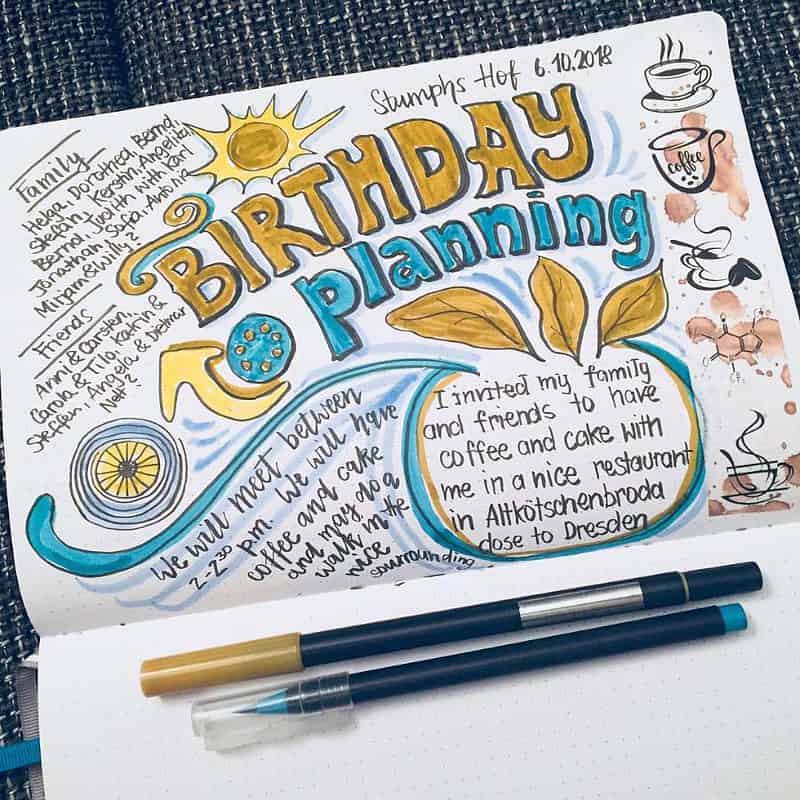 Stumphs Hof 6.10.2018
BIRTHDAY
planning
Family
Helga, Dorothea, Bernd,
Stefan, Kerstin, Angelika,
Bernd, Judith with Karl
Jonathan, Sofia, Antonia
Mirjam & Willy?
Friends
Anni & Carsten,
Carola & Tilo, Katrin &
Steffen, Angela & Dietmar
Net?
We will meet between
2-2³⁰ p.m. We will have
coffee and cake
and may do a
walk in the
nice
sourrounding
I invited my family
and friends to have
coffee and cake with
me in a nice restaurant
in Altkötschenbroda
close to Dresden
coffee